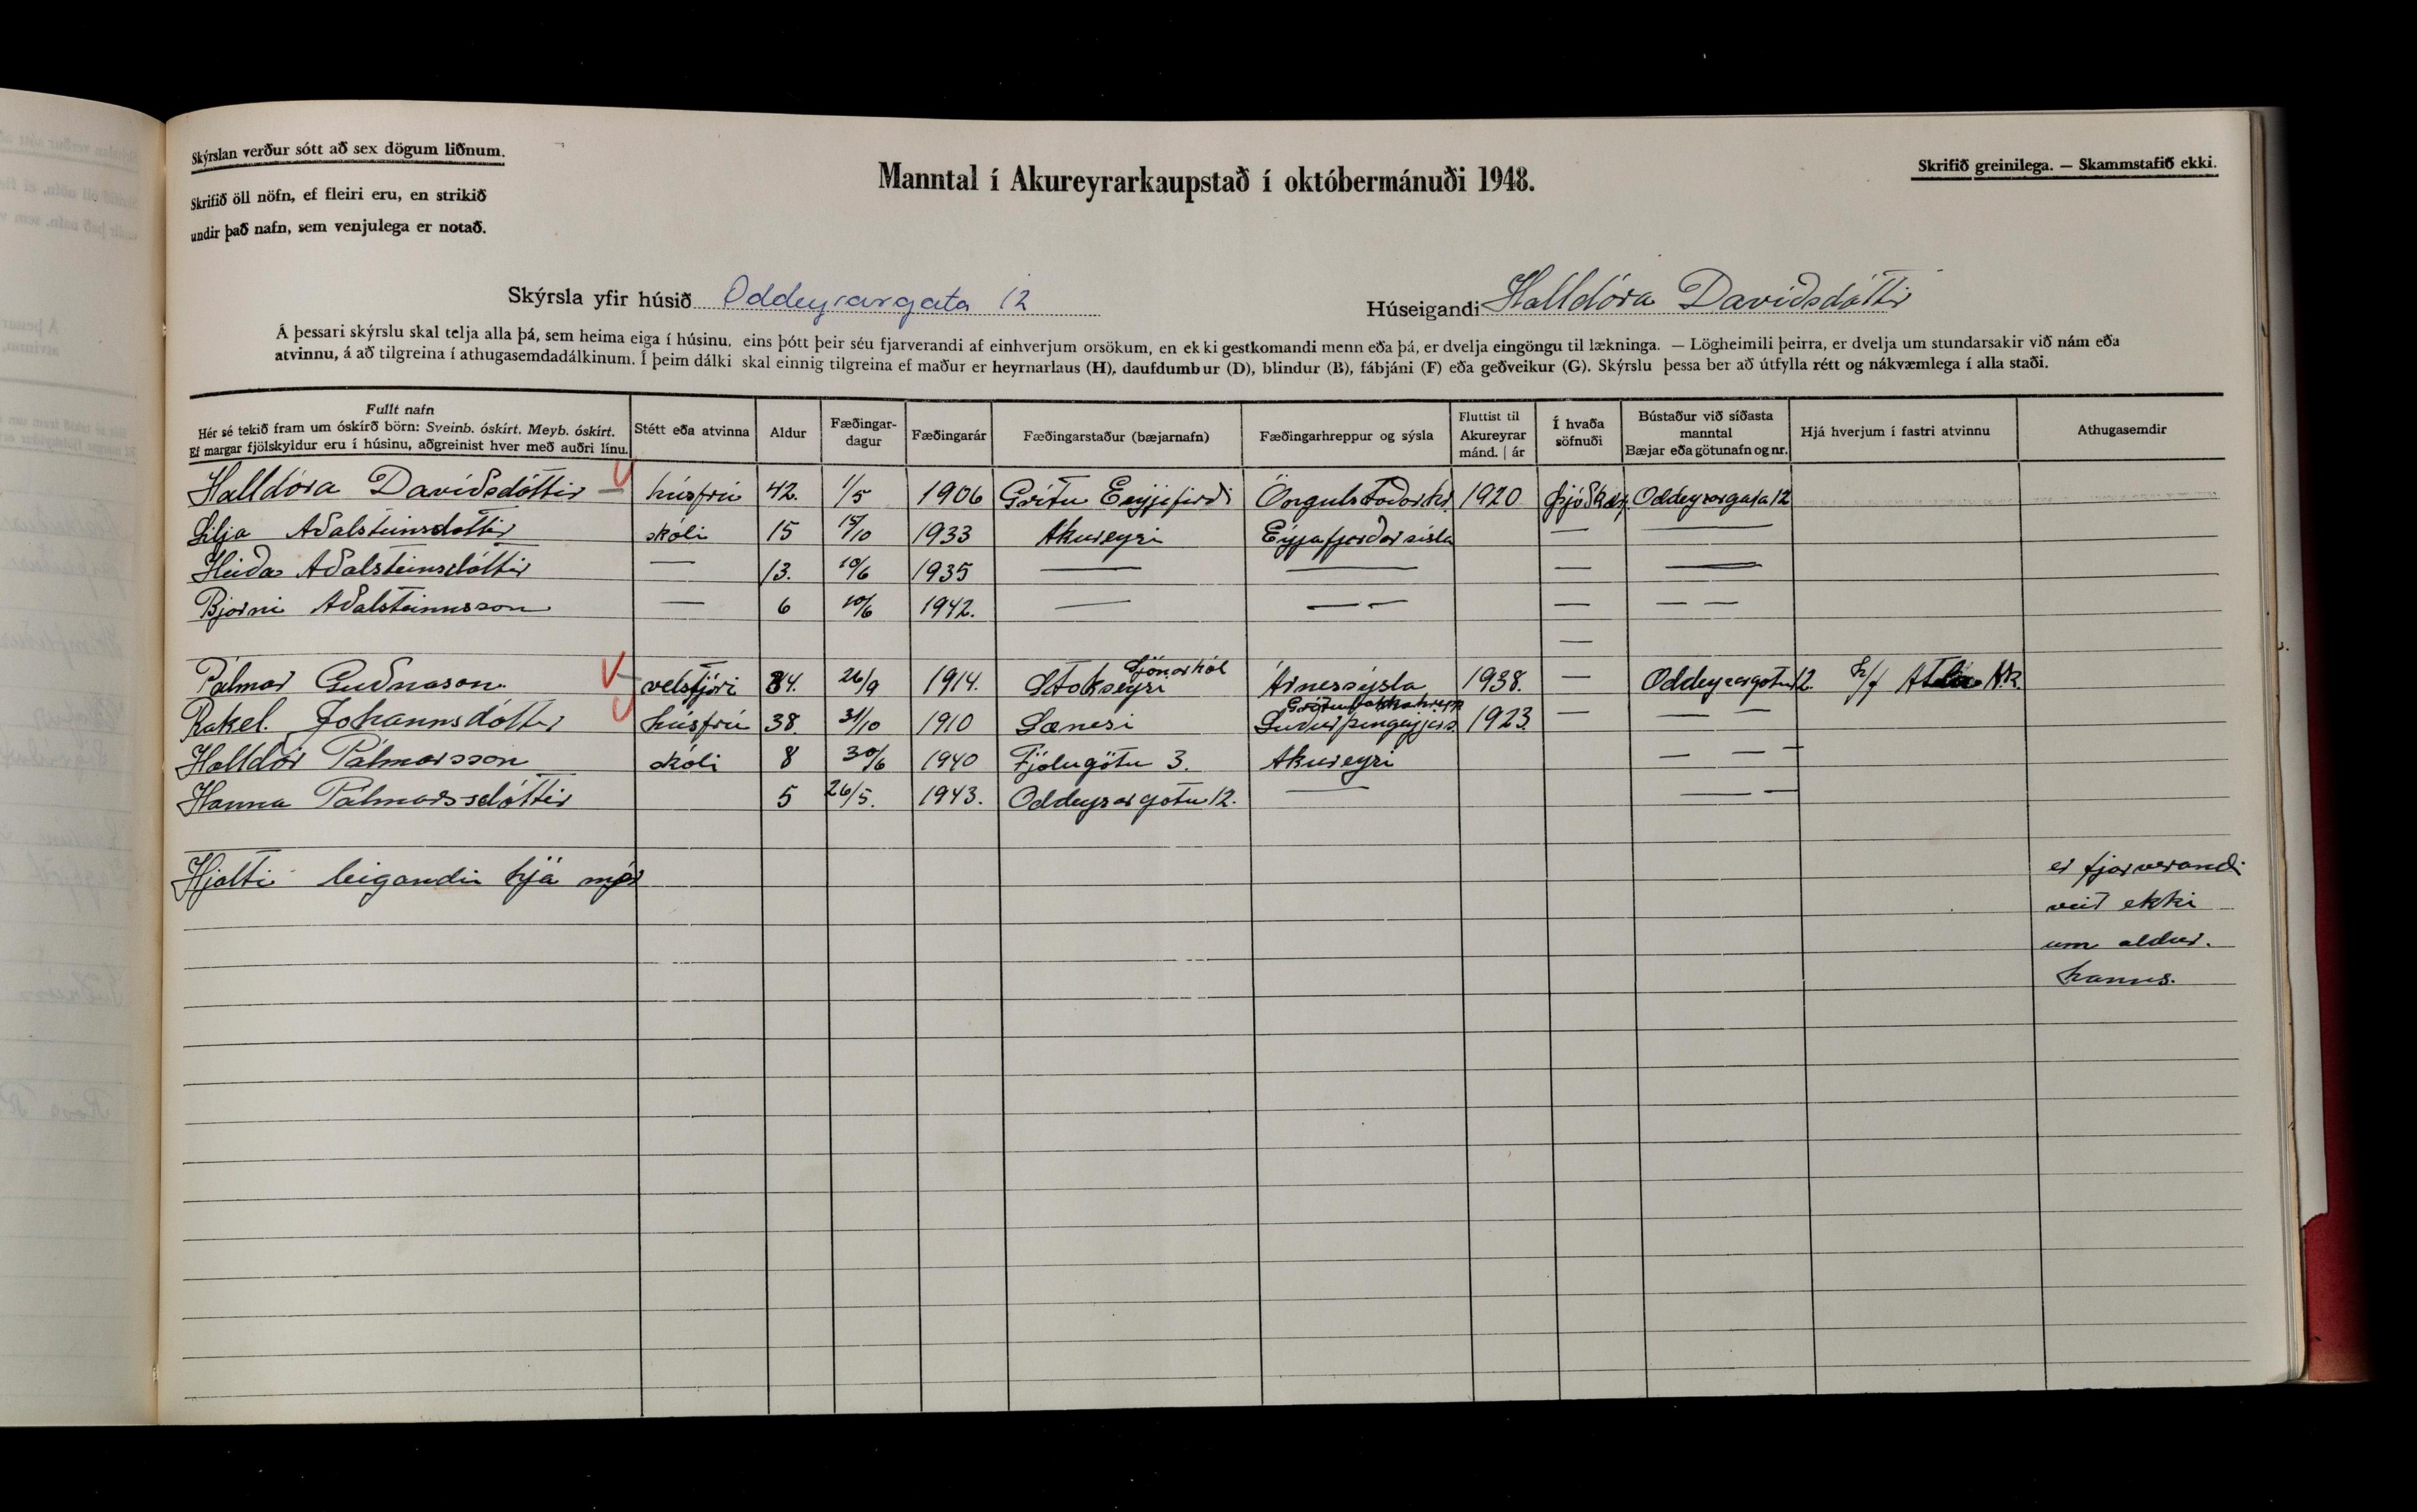 Skýrslan verður sótt að sex dögum liðnum.
Skrifið öll nöfn, ef fleiri eru, en strikið
undir það nafn, sem venjulega er notað.
Manntal í Akureyrarkaupstað í októbermánuði 1948.
Skrifið greinilega. — Skammstafið ekki.
Skýrsla yfir húsið Oddeyrargata 12
Húseigandi Halldóra Davíðsdóttir
Á þessari skýrslu skal telja alla þá, sem heima eiga í húsinu, eins þótt þeir séu fjarverandi af einhverjum orsökum, en ekki gestkomandi menn eða þá, er dvelja eingöngu til lækninga. — Lögheimili þeirra, er dvelja um stundarsakir við nám eða
atvinnu, á að tilgreina í athugasemdadálkinum. Í þeim dálki skal einnig tilgreina ef maður er heyrnarlaus (H), daufdumbur (D), blindur (B), fábjáni (F) eða geðveikur (G). Skýrslu þessa ber að útfylla rétt og nákvæmlega í alla staði.
Fullt nafn
Hér sé tekið fram um óskírð börn: Sveinb. óskírt. Meyb. óskírt.
Ef margar fjölskyldur eru í húsinu, aðgreinist hver með auðri línu.
Stétt eða atvinna
Aldur
Fæðingar-
dagur
Fæðingarár
Fæðingarstaður (bæjarnafn)
Fæðingarhreppur og sýsla
Fluttist til
Akureyrar
mánd. | ár
Í hvaða
söfnuði
Bústaður við síðasta
manntal
Bæjar eða götunafn og nr.
Hjá hverjum í fastri atvinnu
Athugasemdir
Halldóra Davíðsdóttir — húsfrú 42. 1/5 1906 Grítu Eyjafirði Öngulstaðarhr. 1920 Oddeyrargata 12
Lilja Aðalsteinsdóttir skóli 15 15/10 1933 Akureyri Eyjafjarðarsísla — —
Heiða Aðalsteinsdóttir — 13. 10/6 1935 — — — —
Bjarni Aðalsteinsson — 6 10/6 1942. — — — — — —
—
Pálmar Guðnason. velstjóri 34. 26/9 1914. Stokseyri Sjónarhól Árnessýsla 1938. — Oddeyrargötu 12. h/f Atla Ak.
Rakel. Jóhannsdóttir húsfrú 38. 31/10 1910 Sænesi Suðurþingeyjars. 1923. — — —
Halldór Pálmarsson skóli 8 30/6 1940 Fjólugötu 3. Akureyri — — —
Hanna Pálmarssdóttir 5 26/5. 1943. Oddeyrargötu 12. — — —
Hjalti leigandi hjá mér er fjarverandi
veit ekki
um aldur.
hanns.